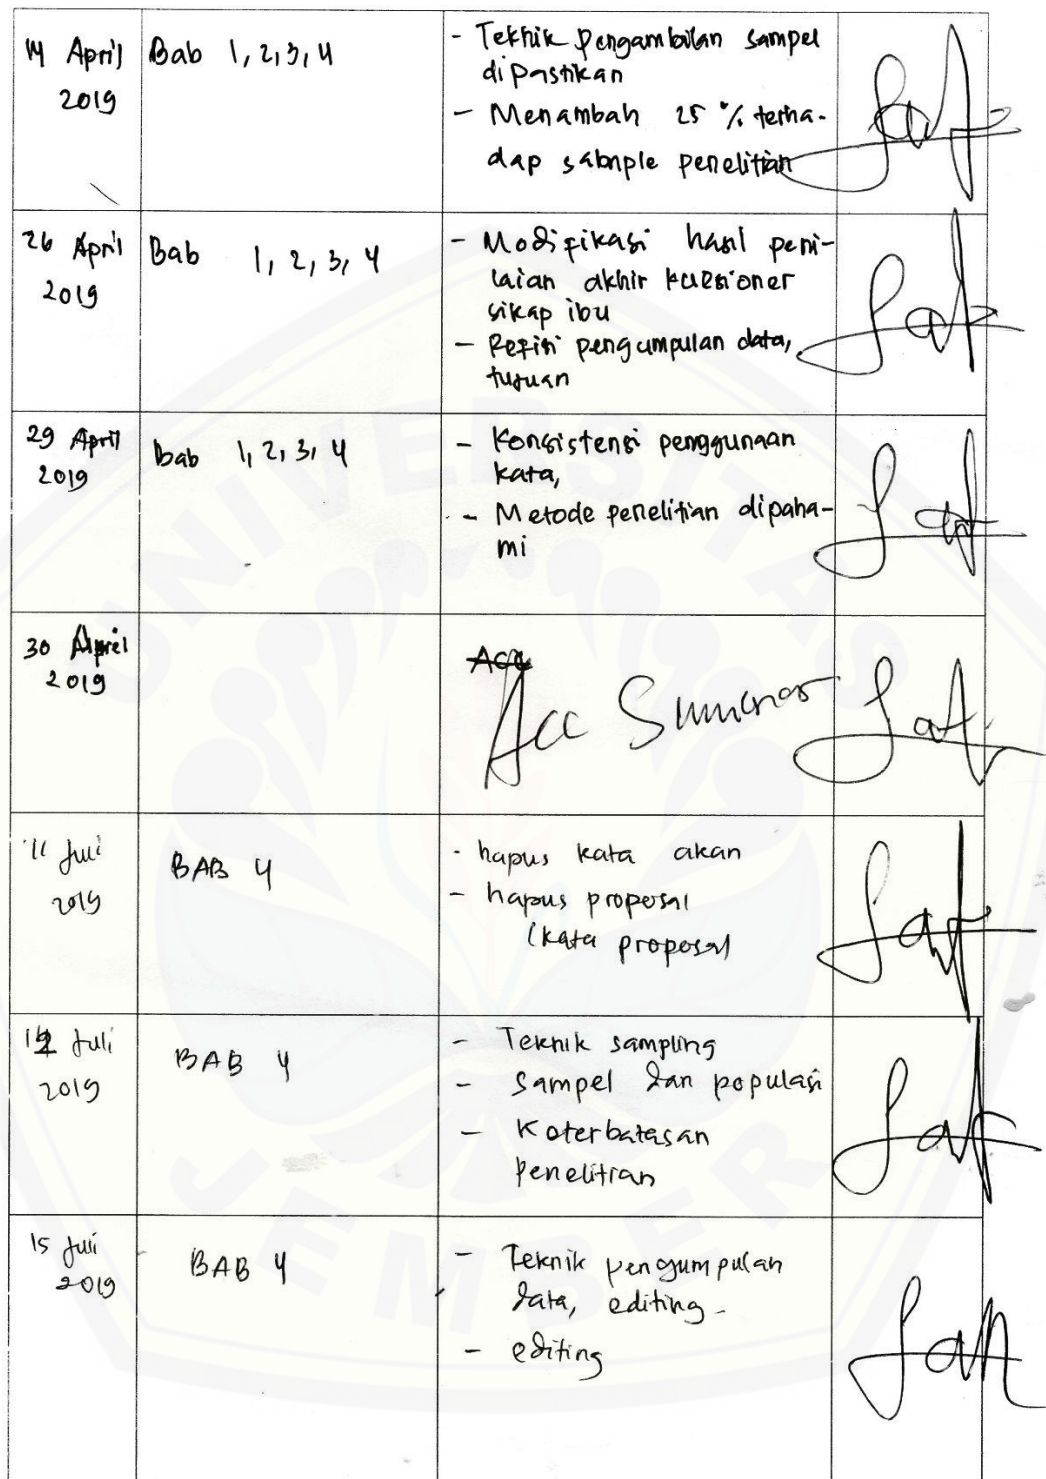 14 April
2019
Bab 1, 2, 3, 4
- Teknik pengambilan sampel
dipastikan
- Menambah 25 % terha-
dap sabnple penelitian
26 April
2019
Bab 1, 2, 3, 4
- Modifikasi hasil peni-
laian akhir kuesioner
sikap ibu
- Refisi pengumpulan data,
tujuan
29 April
2019
bab 1, 2, 3, 4
- Konsistensi penggunaan
kata,
- Metode penelitian dipaha-
mi
30 April
2019
Acc
Acc
11 Juli
2019
BAB 4
- hapus kata akan
- hapus proposal
(kata proposal
Juli
2019
BAB 4
- Teknik sampling
- Sampel dan populasi
- Keterbatasan
penelitian
15 Juli
2019
BAB 4
- Teknik pengumpulan
data, editing -
- editing
UNIVERSITAS
JEMBER